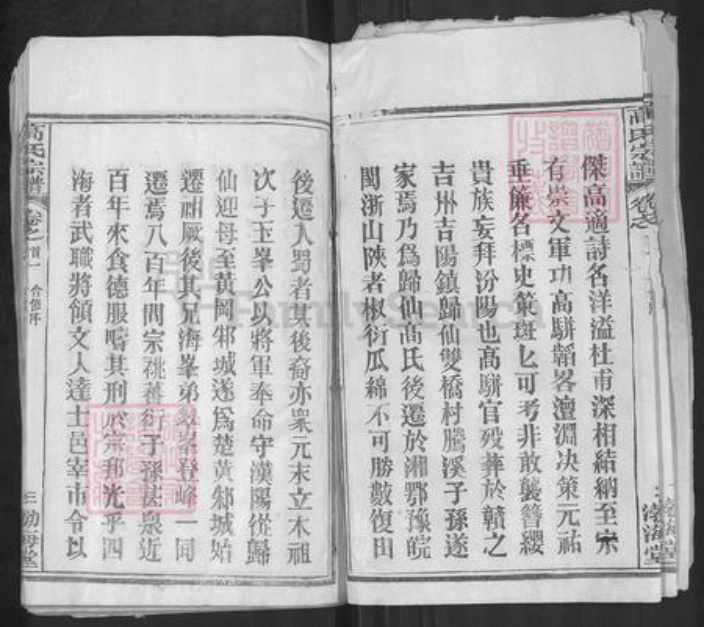 高氏宗譜
傑高適詩名洋溢杜甫深相結納至宋
有崇文軍功高駢韜畧澶淵决策元祐
垂簾名標史策斑匕可考非敢襲簪纓
貴族妄拜汾陽也高駢官殁葬於贛之
吉州吉陽鎮歸仙雙橋村騰溪子孫遂
家焉乃爲歸仙髙氏後遷於湘鄂豫皖
閩浙山陝者椒衍瓜綿不可勝數復由
後遷入蜀者其後裔亦衆元末立木祖
次子玉峯公以將軍奉命守漢陽從歸
仙迎母至黄岡邾城遂爲楚黄邾城始
遷祖厥後其兄海峯弟登峰一同
遷焉八百年間宗祧蕃衍子孫甚衆近
百年來食德服疇其刑於宗邦光乎四
海者武職將領文人達士邑宰市令以
高氏宗譜
卷之首一
合修序
三
渤海堂
渤海堂
FamilySearch